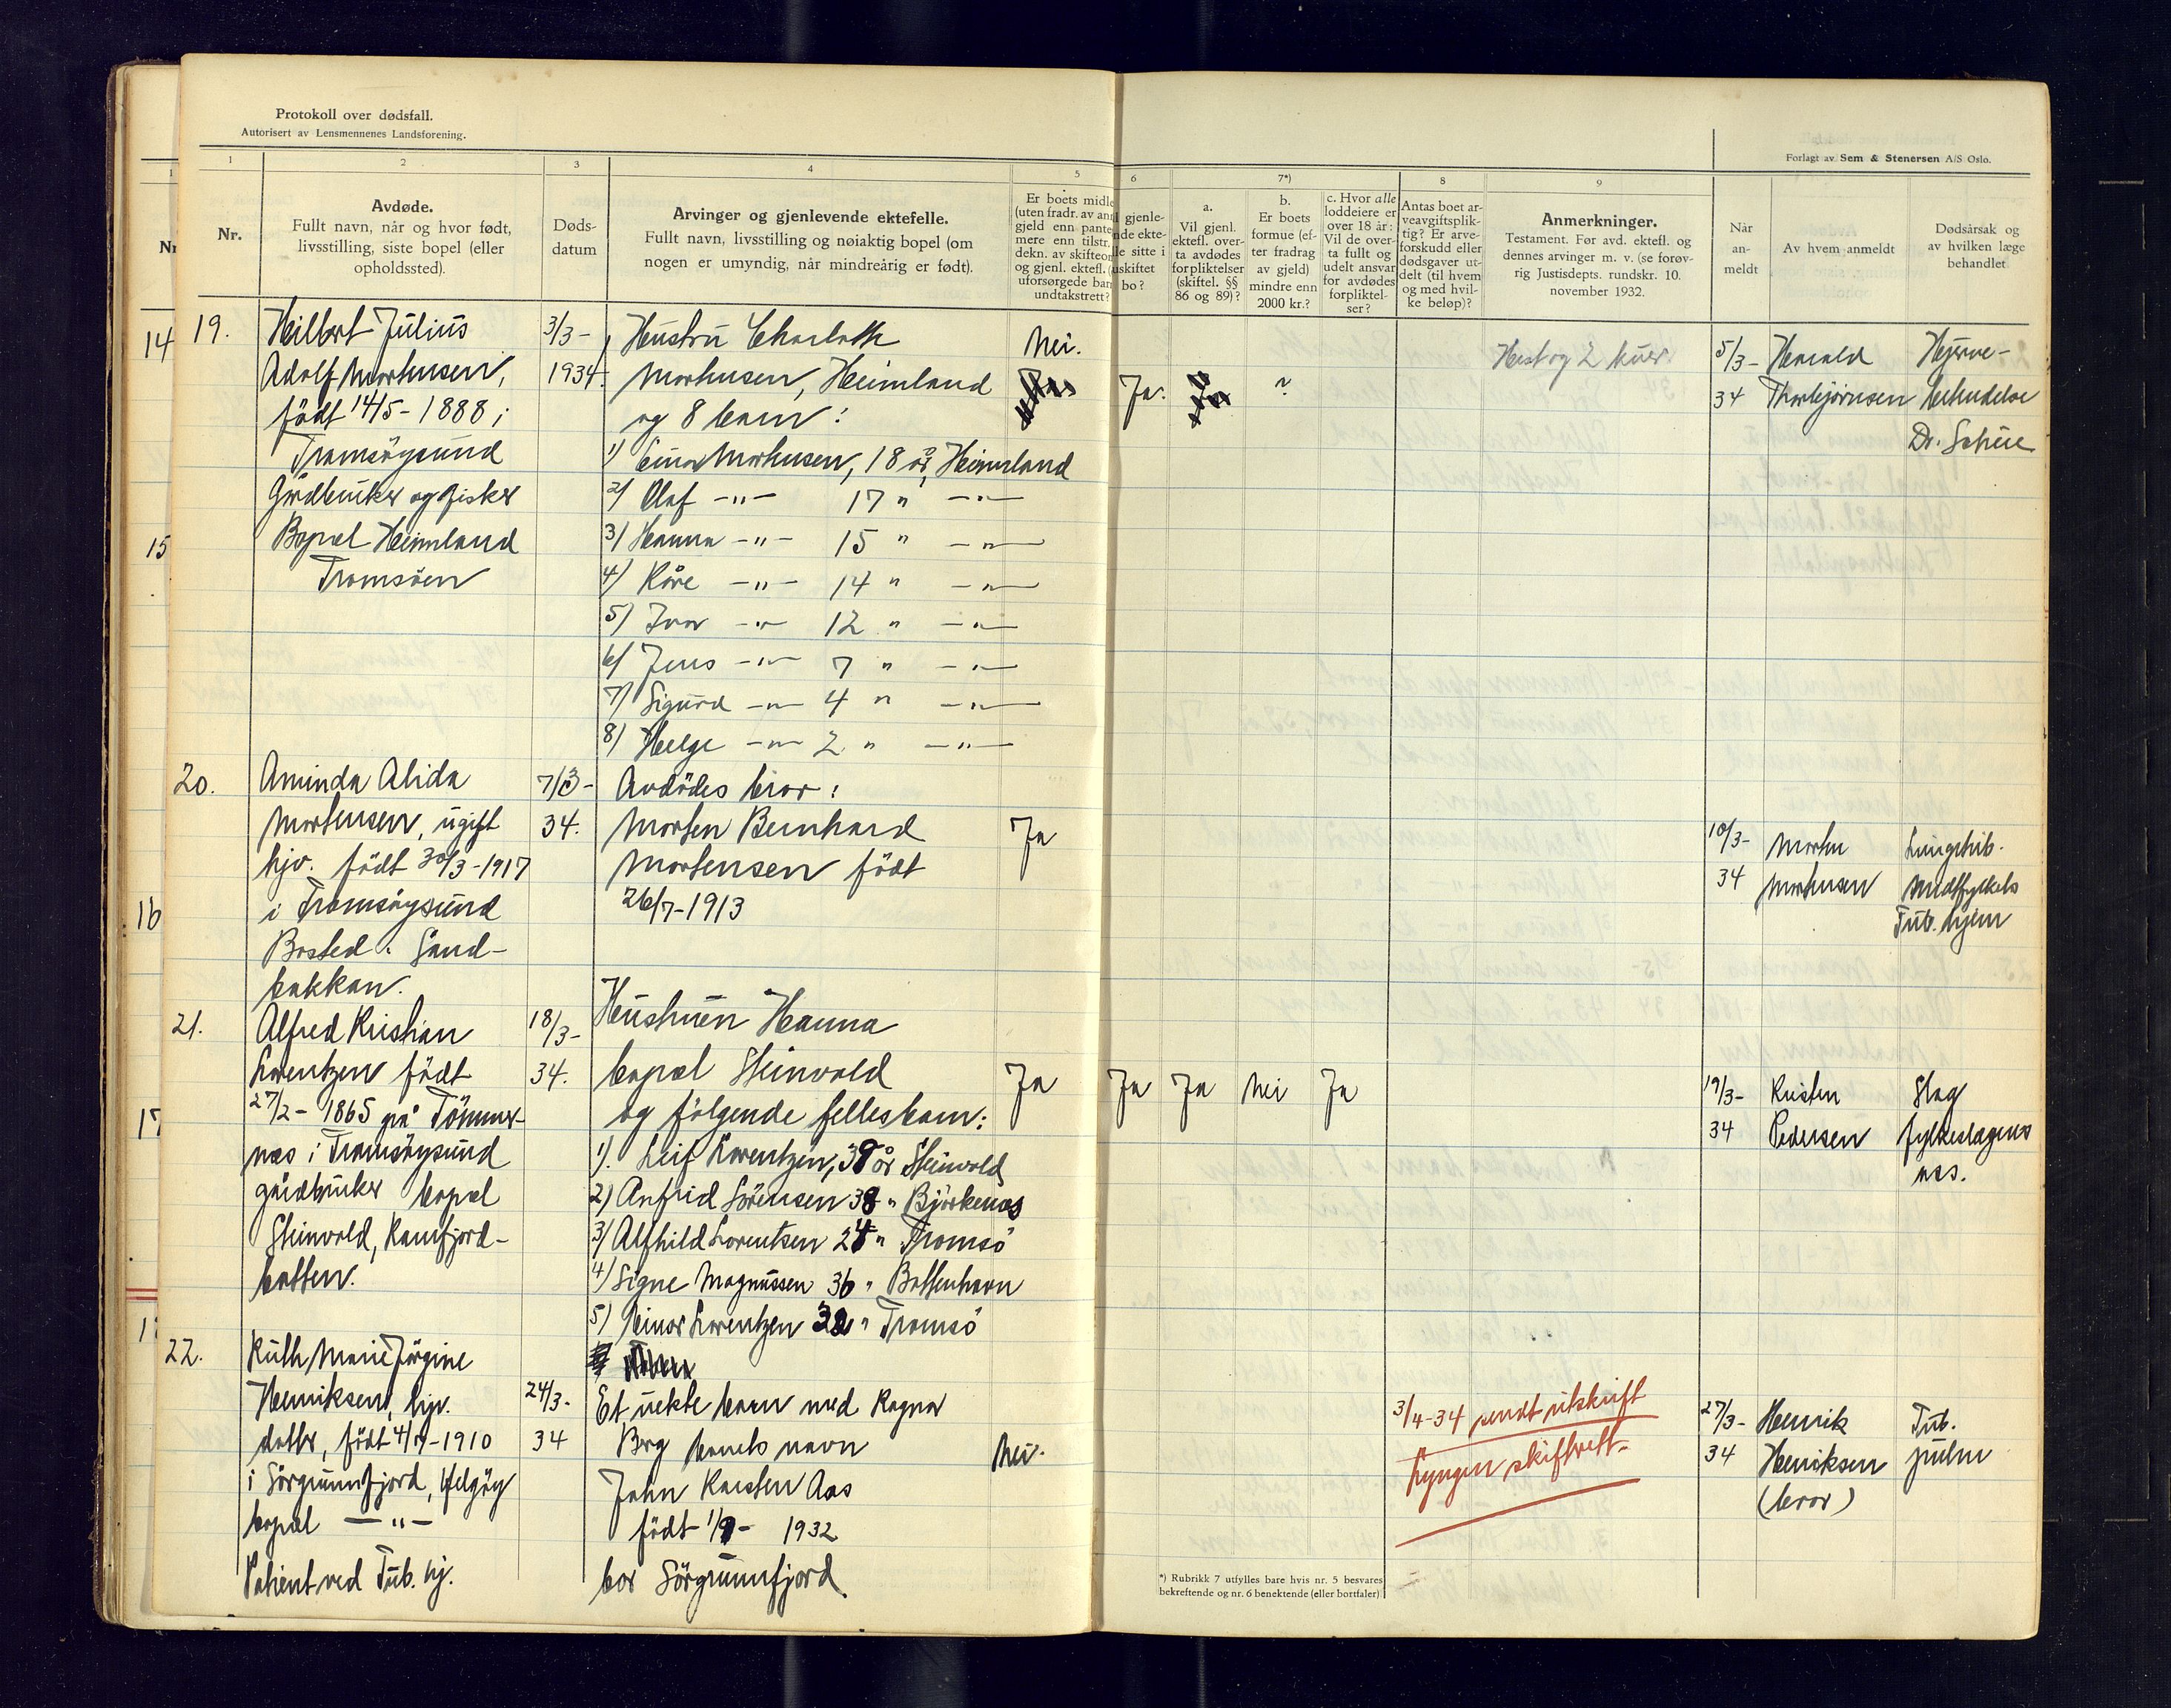 Protokoll over dødsfall.
Autorisert av Lensmennenes Landsforening.
Forlagt av Sem & Stenersen A/S Oslo.
1
2
3
4
5
6
7*)
8
9
Nr.
Avdøde.
Fullt navn, når og hvor født,
livsstilling, siste bopel (eller
opholdssted).
Døds-
datum
Arvinger og gjenlevende ektefelle.
Fullt navn, livsstilling og nøiaktig bopel (om
nogen er umyndig, når mindreårig er født).
Er boets midle
(uten fradr. av ann
gjeld enn pante
mere enn tilstr.
dekn. av skifteom
og gjenl. ektef.
uforsørgede barn
undtakstrett?
gjenle-
nde ekte-
le sitte i
uskiftet
bo?
a.
Vil gjenl.
ektefl. over-
ta avdødes
forpliktelser
(skiftel. §§
86 og 89)?
b.
Er boets
formue (ef-
ter fradrag
av gjeld)
mindre enn
2000 kr.?
c. Hvor alle
loddeiere er
over 18 år:
Vil de over-
ta fullt og
udelt ansvar
for avdødes
forpliktel-
ser?
Antas boet ar-
veavgiftsplik-
tig? Er arve-
forskudd eller
dødsgaver ut-
delt (til hvem
og med hvil-
ke beløp)?
Anmerkninger.
Testament. Før avd. ektefl. og
dennes arvinger m. v. (se forøv-
rig Justisdepts. rundskr. 10.
november 1932.
Når
an-
meldt
Av hvem anmeldt
Dødsårsak og
av hvilken læge
behandlet
14
15
16
17
19.
Hilbert Julius
Adolf Mortensen,
født 14/5-1888 i
Tromsøysund
Gårdbruker og fisker
Bopæl Heimland
Tromsøen
3/3-
1934.
Hustru Charlotte
Mortensen, Heimland
og 8 barn:
1) Einar Mortensen, 18 år, Heimland
2) Olaf -"- 17 " -"-
3) Hanna -"- 15 " -"-
4) Kåre -"- 14 " -"-
5) Ivar -"- 12 " -"-
6) Jens -"- 7 " -"-
7) Sigurd -"- 4 " -"-
8) Helge -"- 2 " -"-
Nei.
Ja.
?
Hest og 2 kuer
5/3-
34
Harald
Thorbjørnsen
Hjerne-
betendelse
Dr. Scheie
20.
Aminda Alida
Mortensen, ugift
hjv. født 30/3-1917
i Tromsøysund
Bosted: Sand-
bakkan.
7/3-
34.
Avdødes bror:
Morten Bernhard
Mortensen født
26/7-1913
Ja
10/3-
34
Morten
Mortensen
Lungetub.
Midtfylkets
Tub. hjem
21.
Alfred Kristian
Lorentzen født
27/2-1865 på Tømmer-
nes i Tromsøysund
gårdbruker bopæl
Steinvold, Ramfjord-
botten.
18/3-
34.
Hustruen Hanna
bopæl Steinvold
og følgende fellesbarn:
1). Leif Lorentzen, 39 år Steinvold
2) Anfrid Sørensen 38 " Bjørkenes
3) Alfhild Lorentsen 24 " Tromsø
4) Signe Magnussen 36 " Bottenhavn
5) Einar Lorentzen 32 " Tromsø
Ja
Ja
Ja
Nei
Ja
19/3-
34
Kristen
Pedersen
Slag
fylkeslægens
ass.
22.
Ruth Marie Jørgine
Henriksen, hjv.
datter, født 4/7-1910
i Sørgrunnfjord, Helgøy
bopæl -"-
Patient ved Tub. hj.
24/3-
34
Et uekte barn med Ragnar
Berg barnets navn
John Karsten Aas
født 1/9- 1932
bor Sørgrunnfjord.
Nei.
3/4-34 sendt utskrift
Lyngen skifterett.
27/3-
34
Henrik
Henriksen
(bror)
Tub.
pulm
*) Rubrikk 7 utfylles bare hvis nr. 5 besvares
bekreftende og nr. 6 benektende (eller bortfaler)